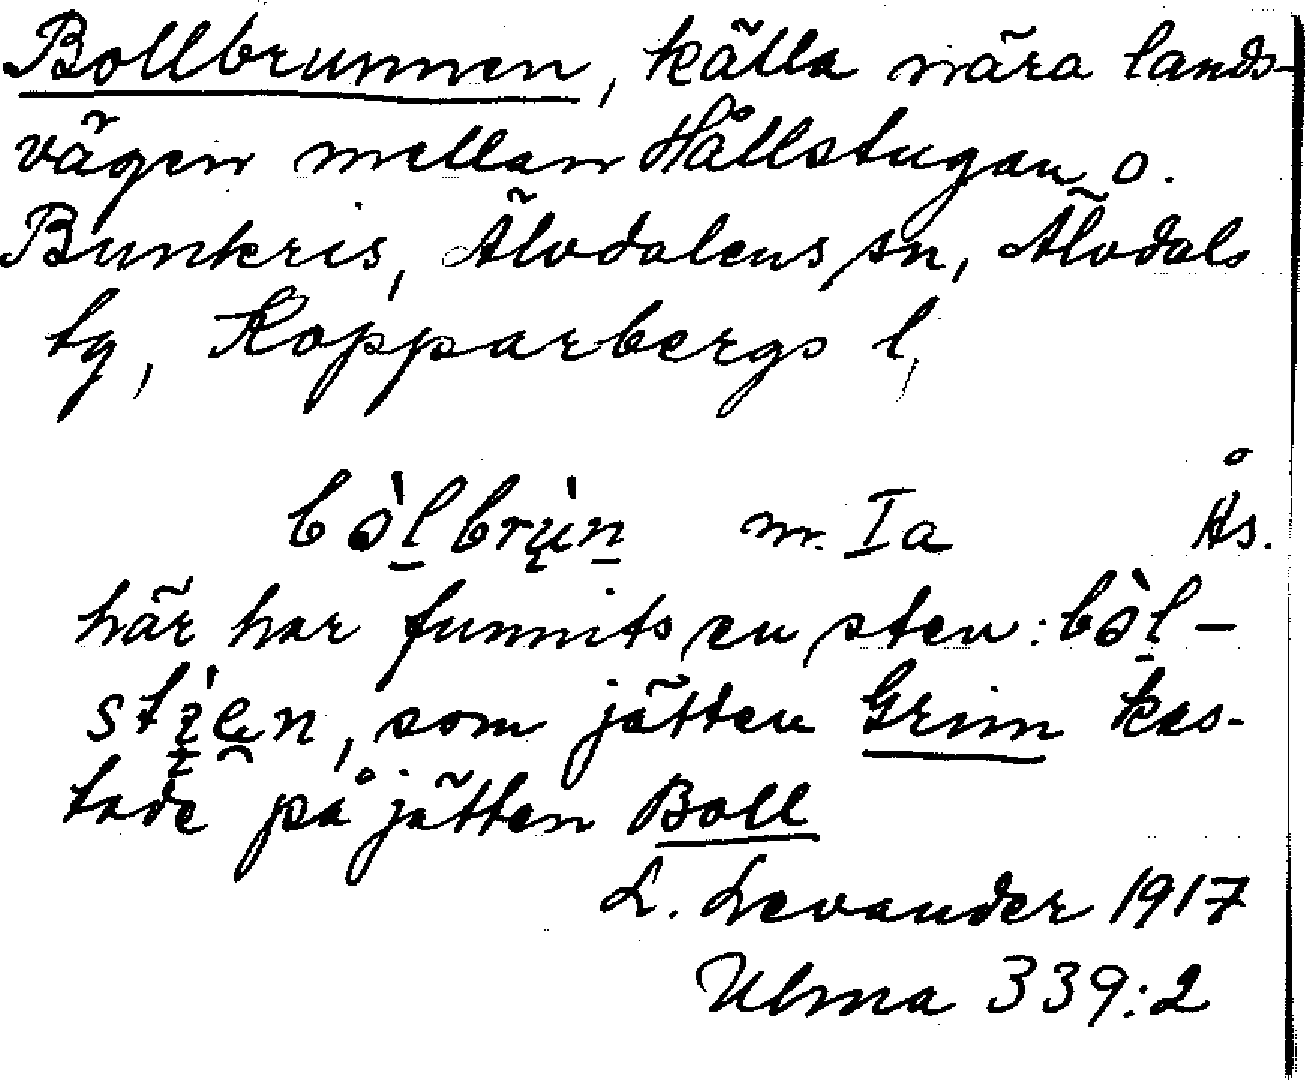 Bollbrunnen, källa nära lands-
vägen mellan Hållstugan o.
Bunkris, Älvdalens sn, Älvdals
tg, Kopparbergs l,
bòl̠brų̀n̠ m. Ia Ås.
här har funnits en sten: bòl̠-
stı̠̀e̯n, som jätten Grim kas-
tade på jätten Boll
L. Levander 1917
Ulma 339:2